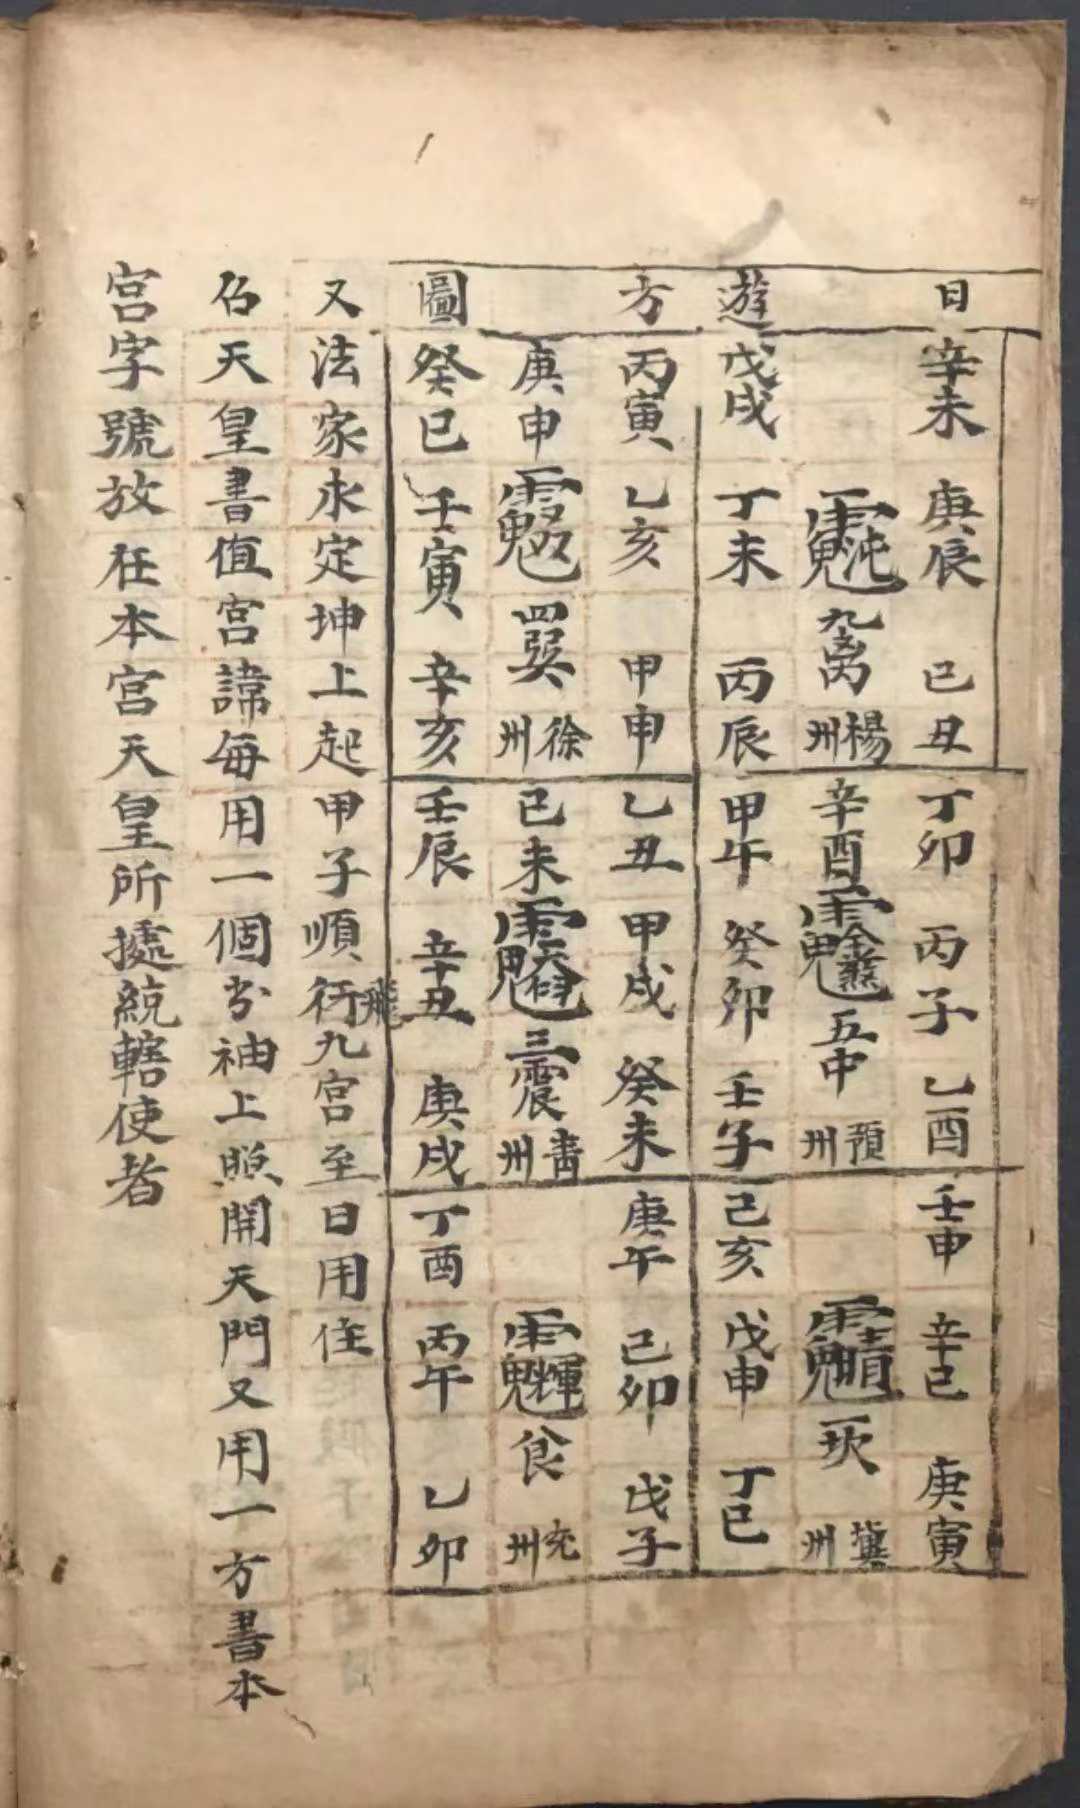 日遊方圖
辛未 庚辰 己丑
九离 楊州
戊戌 丁未 丙辰
丙寅 乙亥 甲申
庚申 四巽 徐州
癸巳 壬寅 辛亥
丁卯 丙子 乙酉
辛酉 五中 預州
甲午 癸卯 壬子
乙丑 甲戌 癸未
己未 三震 青州
壬辰 辛丑 庚戌
壬申 辛巳 庚寅
一坎 冀州
己亥 戊申 丁巳
庚午 己卯 戊子
艮 兖州
丁酉 丙午 乙卯
又法家永定坤上起甲子順行飛九宮至日用住
天皇書值宮諱每用一個於袖上照開天門又用一方書本
宮字號放在本宮天皇所據統轄使者